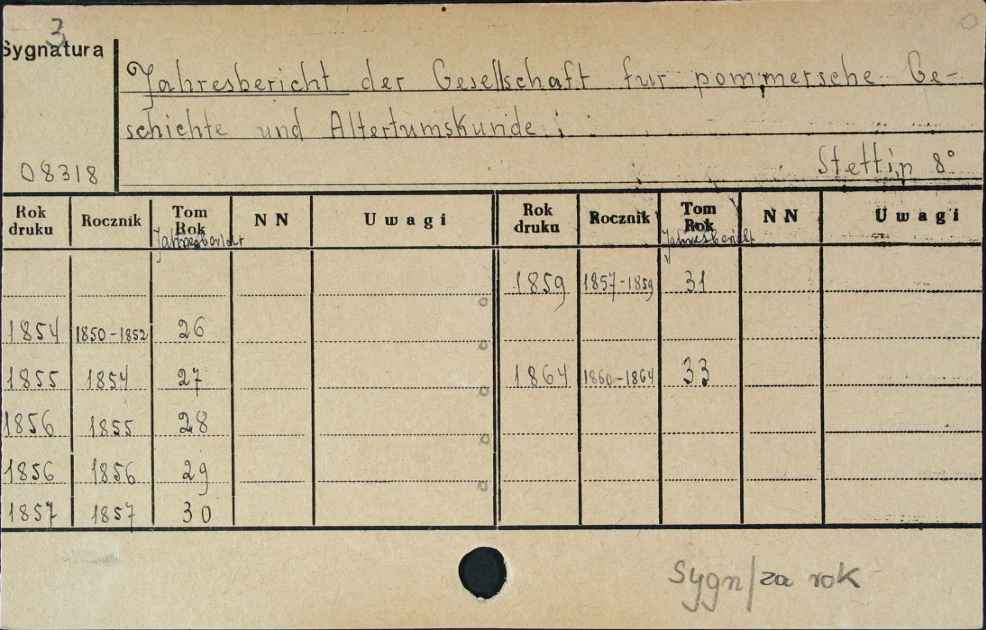 3
Sygnatura
Jahresbericht der Gesellschaft fur pommersche Ge-
schichte und Altertumskunde.
08318
Stettin 8°
Rok druku Rocznik Tom Rok NN Uwagi Rok druku Rocznik Tom Rok NN Uwagi
Jahresbericht Jahresbericht
1859 1857-1859 31
1854 1850-1852 26
1855 1854 27 1864 1860-1864 33
1856 1855 28
1856 1856 29
1857 1857 30
Sygn/za rok